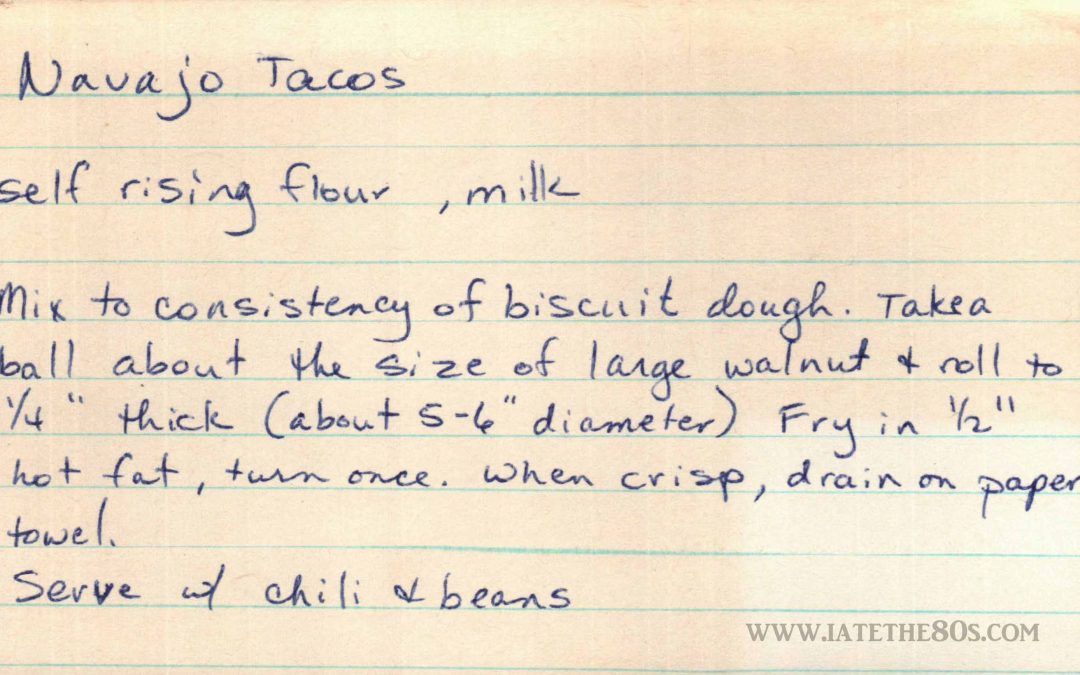 Navajo Tacos
self rising flour , milk
Mix to consistency of biscuit dough. Take a
ball about the size of large walnut & roll to
1/4" thick (about 5-6" diameter) Fry in 1/2"
hot fat, turn once. When crisp, drain on paper
towel.
Serve w/ chili & beans
WWW.IATETHE80S.COM